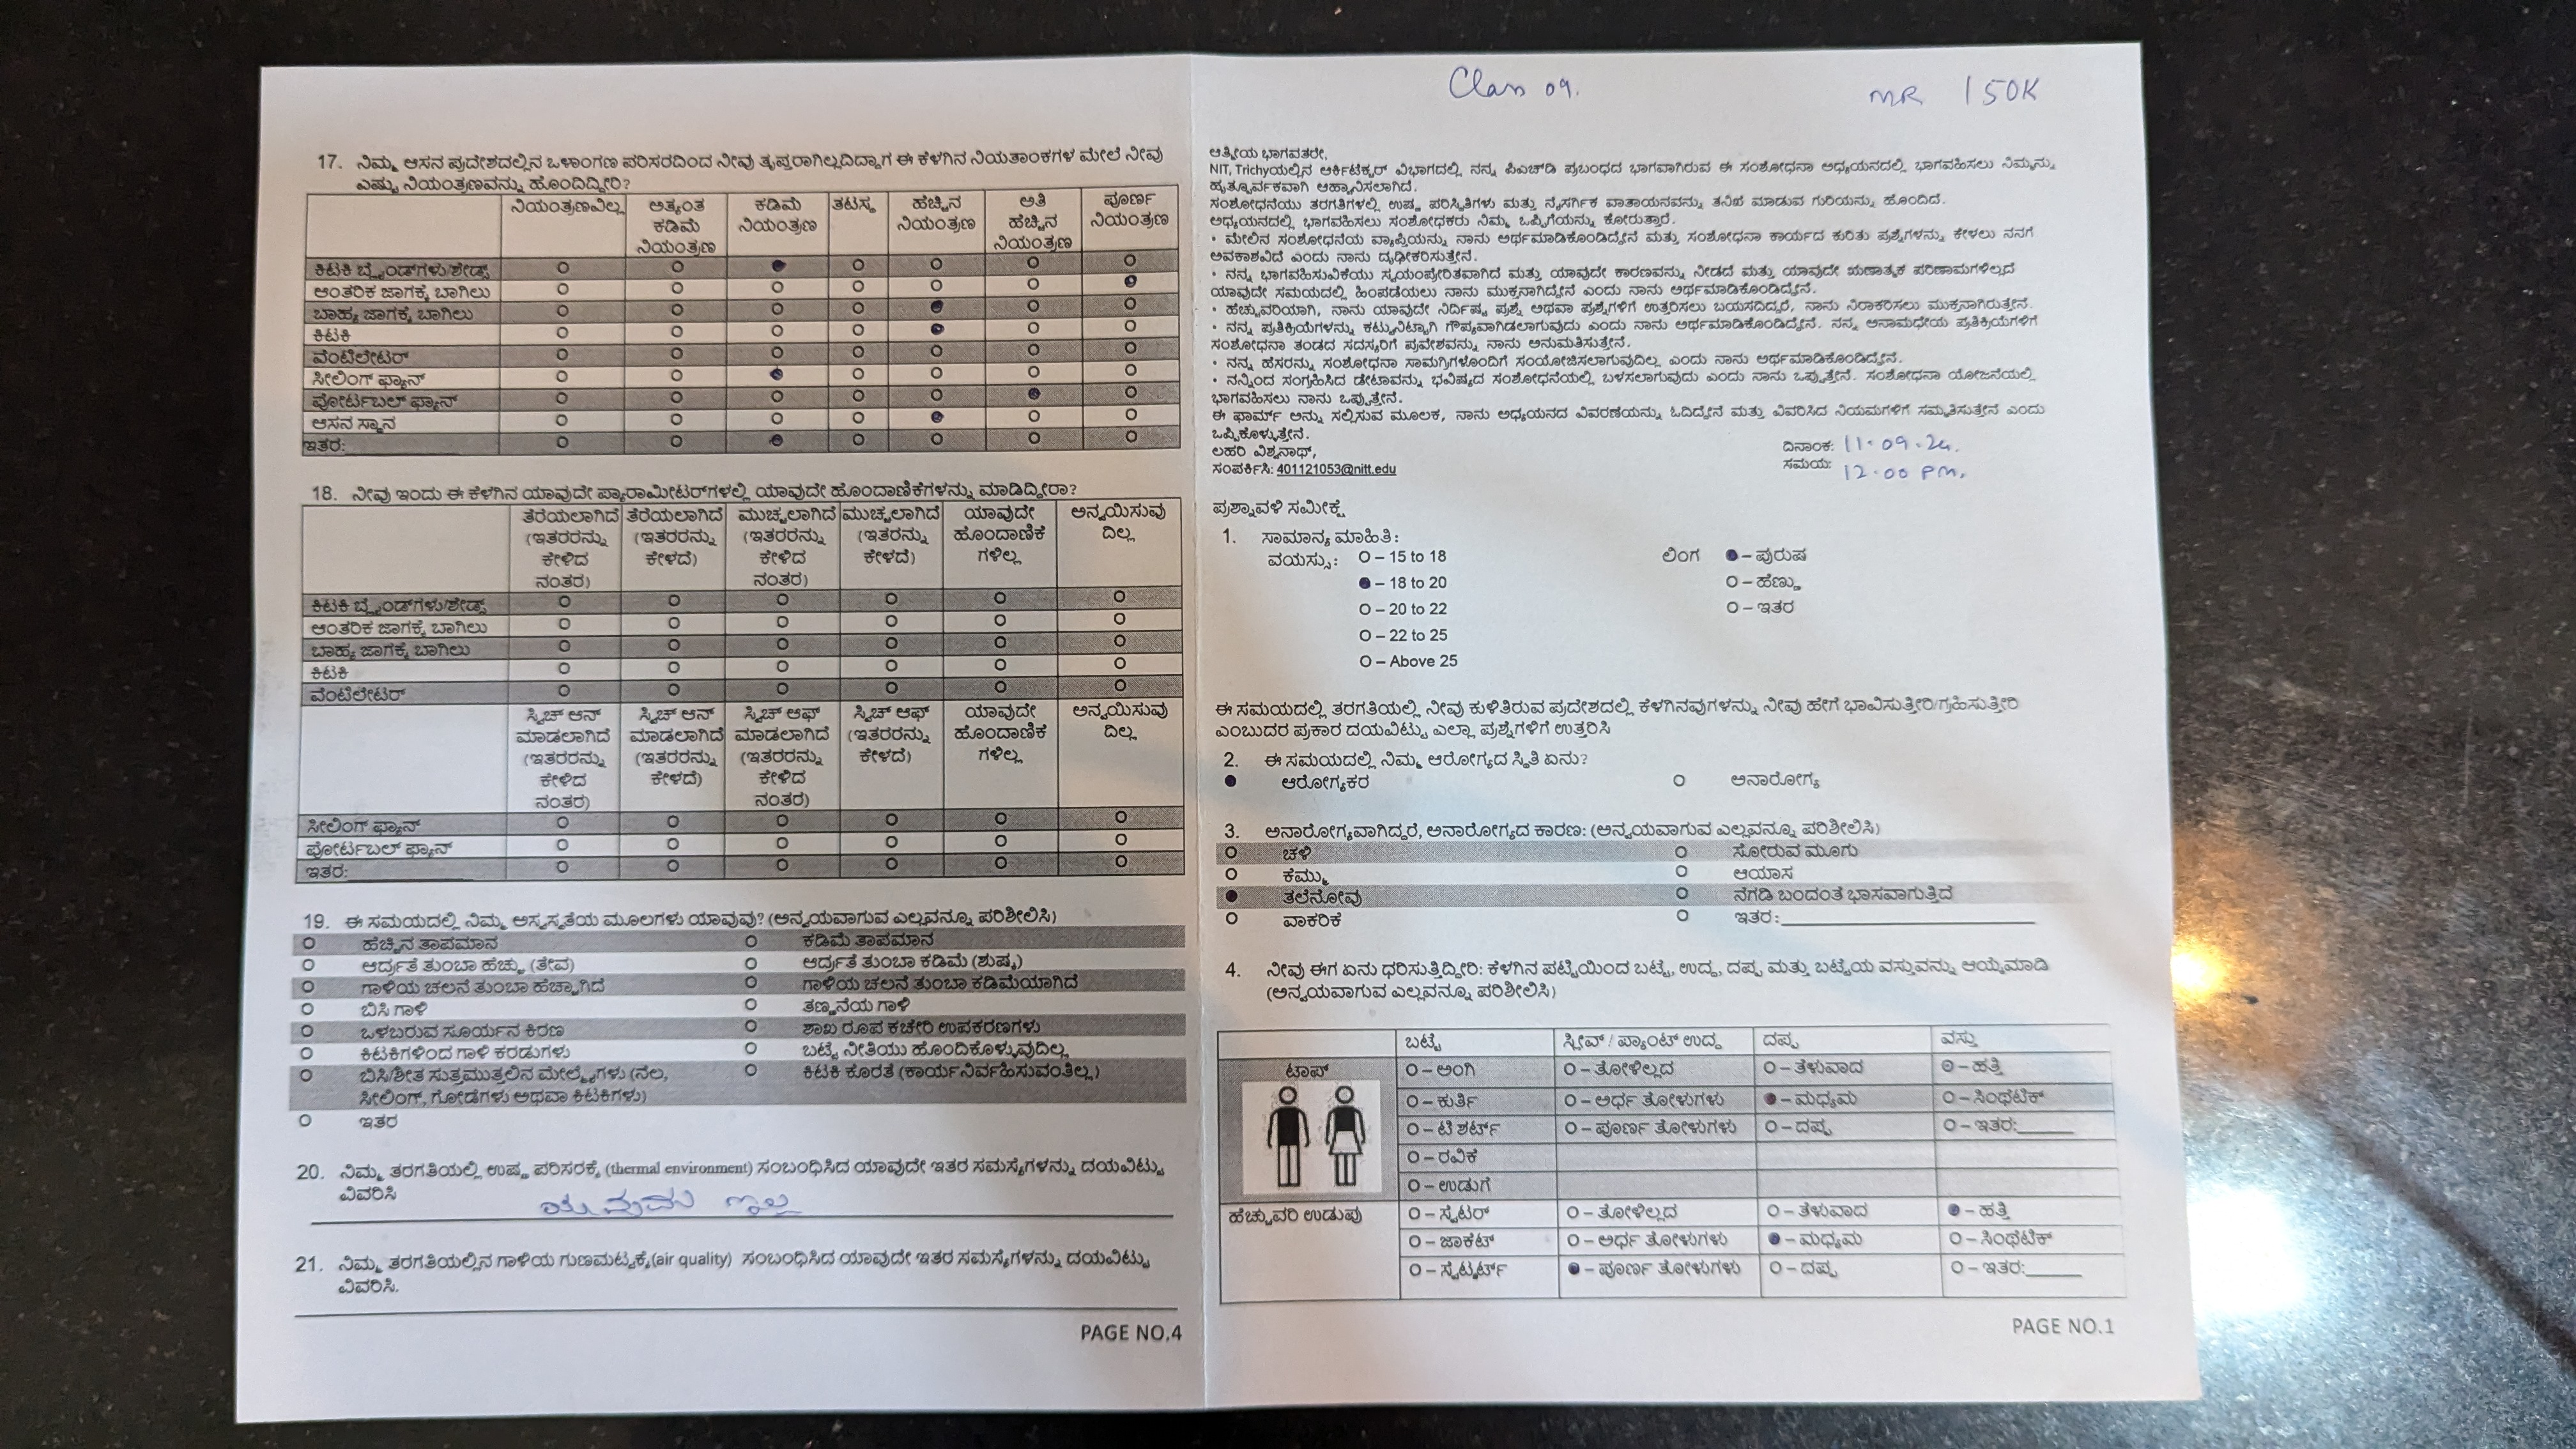 17. ನಿಮ್ಮ ಆಸನ ಪ್ರದೇಶದಲ್ಲಿನ ಒಳಾಂಗಣ ಪರಿಸರದಿಂದ ನೀವು ತೃಪ್ತರಾಗಿಲ್ಲದಿದ್ದಾಗ ಈ ಕೆಳಗಿನ ನಿಯತಾಂಕಗಳ ಮೇಲೆ ನೀವು
ಎಷ್ಟು ನಿಯಂತ್ರಣವನ್ನು ಹೊಂದಿದ್ದೀರಿ?
ನಿಯಂತ್ರಣವಿಲ್ಲ ಅತ್ಯಂತ ಕಡಿಮೆ ನಿಯಂತ್ರಣ ಕಡಿಮೆ ನಿಯಂತ್ರಣ ತಟಸ್ಥ ಹೆಚ್ಚಿನ ನಿಯಂತ್ರಣ ಅತಿ ಹೆಚ್ಚಿನ ನಿಯಂತ್ರಣ ಪೂರ್ಣ ನಿಯಂತ್ರಣ
ಕಿಟಕಿ ಬ್ಲೈಂಡ್‌ಗಳು/ಶೇಡ್ಸ್
ಆಂತರಿಕ ಜಾಗಕ್ಕೆ ಬಾಗಿಲು
ಬಾಹ್ಯ ಜಾಗಕ್ಕೆ ಬಾಗಿಲು
ಕಿಟಕಿ
ವೆಂಟಿಲೇಟರ್
ಸೀಲಿಂಗ್ ಫ್ಯಾನ್
ಪೋರ್ಟಬಲ್ ಫ್ಯಾನ್
ಆಸನ ಸ್ಥಾನ
ಇತರ:
18. ನೀವು ಇಂದು ಈ ಕೆಳಗಿನ ಯಾವುದೇ ಪ್ಯಾರಾಮೀಟರ್‌ಗಳಲ್ಲಿ ಯಾವುದೇ ಹೊಂದಾಣಿಕೆಗಳನ್ನು ಮಾಡಿದ್ದೀರಾ?
ತೆರೆಯಲಾಗಿದೆ (ಇತರರನ್ನು ಕೇಳಿದ ನಂತರ) ತೆರೆಯಲಾಗಿದೆ (ಇತರರನ್ನು ಕೇಳದೆ) ಮುಚ್ಚಲಾಗಿದೆ (ಇತರರನ್ನು ಕೇಳಿದ ನಂತರ) ಮುಚ್ಚಲಾಗಿದೆ (ಇತರನ್ನು ಕೇಳದೆ) ಯಾವುದೇ ಹೊಂದಾಣಿಕೆ ಗಳಿಲ್ಲ ಅನ್ವಯಿಸುವು ದಿಲ್ಲ
ಕಿಟಕಿ ಬ್ಲೈಂಡ್‌ಗಳು/ಶೇಡ್ಸ್
ಆಂತರಿಕ ಜಾಗಕ್ಕೆ ಬಾಗಿಲು
ಬಾಹ್ಯ ಜಾಗಕ್ಕೆ ಬಾಗಿಲು
ಕಿಟಕಿ
ವೆಂಟಿಲೇಟರ್
ಸ್ವಿಚ್ ಆನ್ ಮಾಡಲಾಗಿದೆ (ಇತರರನ್ನು ಕೇಳಿದ ನಂತರ) ಸ್ವಿಚ್ ಆನ್ ಮಾಡಲಾಗಿದೆ (ಇತರರನ್ನು ಕೇಳದೆ) ಸ್ವಿಚ್ ಆಫ್ ಮಾಡಲಾಗಿದೆ (ಇತರರನ್ನು ಕೇಳಿದ ನಂತರ) ಸ್ವಿಚ್ ಆಫ್ (ಇತರರನ್ನು ಕೇಳದೆ) ಯಾವುದೇ ಹೊಂದಾಣಿಕೆ ಗಳಿಲ್ಲ ಅನ್ವಯಿಸುವು ದಿಲ್ಲ
ಸೀಲಿಂಗ್ ಫ್ಯಾನ್
ಪೋರ್ಟಬಲ್ ಫ್ಯಾನ್
ಇತರ:
19. ಈ ಸಮಯದಲ್ಲಿ ನಿಮ್ಮ ಅಸ್ವಸ್ಥತೆಯ ಮೂಲಗಳು ಯಾವುವು? (ಅನ್ವಯವಾಗುವ ಎಲ್ಲವನ್ನೂ ಪರಿಶೀಲಿಸಿ)
ಹೆಚ್ಚಿನ ತಾಪಮಾನ ಕಡಿಮೆ ತಾಪಮಾನ
ಆರ್ದ್ರತೆ ತುಂಬಾ ಹೆಚ್ಚು (ತೇವ) ಆರ್ದ್ರತೆ ತುಂಬಾ ಕಡಿಮೆ (ಶುಷ್ಕ)
ಗಾಳಿಯ ಚಲನೆ ತುಂಬಾ ಹೆಚ್ಚಾಗಿದೆ ಗಾಳಿಯ ಚಲನೆ ತುಂಬಾ ಕಡಿಮೆಯಾಗಿದೆ
ಬಿಸಿ ಗಾಳಿ ತಣ್ಣನೆಯ ಗಾಳಿ
ಒಳಬರುವ ಸೂರ್ಯನ ಕಿರಣ ಶಾಖ ರೂಪ ಕಚೇರಿ ಉಪಕರಣಗಳು
ಕಿಟಕಿಗಳಿಂದ ಗಾಳಿ ಕರಡುಗಳು ಬಟ್ಟೆ ನೀತಿಯು ಹೊಂದಿಕೊಳ್ಳುವುದಿಲ್ಲ
ಬಿಸಿ/ಶೀತ ಸುತ್ತಮುತ್ತಲಿನ ಮೇಲ್ಮೈಗಳು (ನೆಲ, ಕಿಟಕಿ ಕೊರತೆ (ಕಾರ್ಯನಿರ್ವಹಿಸುವಂತಿಲ್ಲ)
ಸೀಲಿಂಗ್, ಗೋಡೆಗಳು ಅಥವಾ ಕಿಟಕಿಗಳು)
ಇತರ
20. ನಿಮ್ಮ ತರಗತಿಯಲ್ಲಿ ಉಷ್ಣ ಪರಿಸರಕ್ಕೆ (thermal environment) ಸಂಬಂಧಿಸಿದ ಯಾವುದೇ ಇತರ ಸಮಸ್ಯೆಗಳನ್ನು ದಯವಿಟ್ಟು
ವಿವರಿಸಿ
21. ನಿಮ್ಮ ತರಗತಿಯಲ್ಲಿನ ಗಾಳಿಯ ಗುಣಮಟ್ಟಕ್ಕೆ(air quality) ಸಂಬಂಧಿಸಿದ ಯಾವುದೇ ಇತರ ಸಮಸ್ಯೆಗಳನ್ನು ದಯವಿಟ್ಟು
ವಿವರಿಸಿ.
PAGE NO.4
Class 09. MR 150K
ಆತ್ಮೀಯ ಭಾಗವತರೇ,
NIT, Trichyಯಲ್ಲಿನ ಆರ್ಕಿಟೆಕ್ಚರ್ ವಿಭಾಗದಲ್ಲಿ ನನ್ನ ಪಿಎಚ್‌ಡಿ ಪ್ರಬಂಧದ ಭಾಗವಾಗಿರುವ ಈ ಸಂಶೋಧನಾ ಅಧ್ಯಯನದಲ್ಲಿ ಭಾಗವಹಿಸಲು ನಿಮ್ಮನ್ನು
ಹೃತ್ಪೂರ್ವಕವಾಗಿ ಆಹ್ವಾನಿಸಲಾಗಿದೆ.
ಸಂಶೋಧನೆಯು ತರಗತಿಗಳಲ್ಲಿ ಉಷ್ಣ ಪರಿಸ್ಥಿತಿಗಳು ಮತ್ತು ನೈಸರ್ಗಿಕ ವಾತಾಯನವನ್ನು ತನಿಖೆ ಮಾಡುವ ಗುರಿಯನ್ನು ಹೊಂದಿದೆ.
ಅಧ್ಯಯನದಲ್ಲಿ ಭಾಗವಹಿಸಲು ಸಂಶೋಧಕರು ನಿಮ್ಮ ಒಪ್ಪಿಗೆಯನ್ನು ಕೋರುತ್ತಾರೆ.
• ಮೇಲಿನ ಸಂಶೋಧನೆಯ ವ್ಯಾಪ್ತಿಯನ್ನು ನಾನು ಅರ್ಥಮಾಡಿಕೊಂಡಿದ್ದೇನೆ ಮತ್ತು ಸಂಶೋಧನಾ ಕಾರ್ಯದ ಕುರಿತು ಪ್ರಶ್ನೆಗಳನ್ನು ಕೇಳಲು ನನಗೆ
ಅವಕಾಶವಿದೆ ಎಂದು ನಾನು ದೃಢೀಕರಿಸುತ್ತೇನೆ.
• ನನ್ನ ಭಾಗವಹಿಸುವಿಕೆಯು ಸ್ವಯಂಪ್ರೇರಿತವಾಗಿದೆ ಮತ್ತು ಯಾವುದೇ ಕಾರಣವನ್ನು ನೀಡದೆ ಮತ್ತು ಯಾವುದೇ ಋಣಾತ್ಮಕ ಪರಿಣಾಮಗಳಿಲ್ಲದೆ
ಯಾವುದೇ ಸಮಯದಲ್ಲಿ ಹಿಂಪಡೆಯಲು ನಾನು ಮುಕ್ತನಾಗಿದ್ದೇನೆ ಎಂದು ನಾನು ಅರ್ಥಮಾಡಿಕೊಂಡಿದ್ದೇನೆ.
• ಹೆಚ್ಚುವರಿಯಾಗಿ, ನಾನು ಯಾವುದೇ ನಿರ್ದಿಷ್ಟ ಪ್ರಶ್ನೆ ಅಥವಾ ಪ್ರಶ್ನೆಗಳಿಗೆ ಉತ್ತರಿಸಲು ಬಯಸದಿದ್ದರೆ, ನಾನು ನಿರಾಕರಿಸಲು ಮುಕ್ತನಾಗಿರುತ್ತೇನೆ.
• ನನ್ನ ಪ್ರತಿಕ್ರಿಯೆಗಳನ್ನು ಕಟ್ಟುನಿಟ್ಟಾಗಿ ಗೌಪ್ಯವಾಗಿಡಲಾಗುವುದು ಎಂದು ನಾನು ಅರ್ಥಮಾಡಿಕೊಂಡಿದ್ದೇನೆ. ನನ್ನ ಅನಾಮಧೇಯ ಪ್ರತಿಕ್ರಿಯೆಗಳಿಗೆ
ಸಂಶೋಧನಾ ತಂಡದ ಸದಸ್ಯರಿಗೆ ಪ್ರವೇಶವನ್ನು ನಾನು ಅನುಮತಿಸುತ್ತೇನೆ.
• ನನ್ನ ಹೆಸರನ್ನು ಸಂಶೋಧನಾ ಸಾಮಗ್ರಿಗಳೊಂದಿಗೆ ಸಂಯೋಜಿಸಲಾಗುವುದಿಲ್ಲ ಎಂದು ನಾನು ಅರ್ಥಮಾಡಿಕೊಂಡಿದ್ದೇನೆ.
• ನನ್ನಿಂದ ಸಂಗ್ರಹಿಸಿದ ಡೇಟಾವನ್ನು ಭವಿಷ್ಯದ ಸಂಶೋಧನೆಯಲ್ಲಿ ಬಳಸಲಾಗುವುದು ಎಂದು ನಾನು ಒಪ್ಪುತ್ತೇನೆ. ಸಂಶೋಧನಾ ಯೋಜನೆಯಲ್ಲಿ
ಭಾಗವಹಿಸಲು ನಾನು ಒಪ್ಪುತ್ತೇನೆ.
ಈ ಫಾರ್ಮ್ ಅನ್ನು ಸಲ್ಲಿಸುವ ಮೂಲಕ, ನಾನು ಅಧ್ಯಯನದ ವಿವರಣೆಯನ್ನು ಓದಿದ್ದೇನೆ ಮತ್ತು ವಿವರಿಸಿದ ನಿಯಮಗಳಿಗೆ ಸಮ್ಮತಿಸುತ್ತೇನೆ ಎಂದು
ಒಪ್ಪಿಕೊಳ್ಳುತ್ತೇನೆ.
ಲಹರಿ ವಿಶ್ವನಾಥ್,
ಸಂಪರ್ಕಿಸಿ: 401121053@nitt.edu
ದಿನಾಂಕ: 11.09.24.
ಸಮಯ: 12.00 PM.
ಪ್ರಶ್ನಾವಳಿ ಸಮೀಕ್ಷೆ
1. ಸಾಮಾನ್ಯ ಮಾಹಿತಿ:
ವಯಸ್ಸು: – 15 to 18 ಲಿಂಗ – ಪುರುಷ
– 18 to 20 – ಹೆಣ್ಣು
– 20 to 22 – ಇತರ
– 22 to 25
– Above 25
ಈ ಸಮಯದಲ್ಲಿ ತರಗತಿಯಲ್ಲಿ ನೀವು ಕುಳಿತಿರುವ ಪ್ರದೇಶದಲ್ಲಿ ಕೆಳಗಿನವುಗಳನ್ನು ನೀವು ಹೇಗೆ ಭಾವಿಸುತ್ತೀರಿ/ಗ್ರಹಿಸುತ್ತೀರಿ
ಎಂಬುದರ ಪ್ರಕಾರ ದಯವಿಟ್ಟು ಎಲ್ಲಾ ಪ್ರಶ್ನೆಗಳಿಗೆ ಉತ್ತರಿಸಿ
2. ಈ ಸಮಯದಲ್ಲಿ ನಿಮ್ಮ ಆರೋಗ್ಯದ ಸ್ಥಿತಿ ಏನು?
ಆರೋಗ್ಯಕರ ಅನಾರೋಗ್ಯ
3. ಅನಾರೋಗ್ಯವಾಗಿದ್ದರೆ, ಅನಾರೋಗ್ಯದ ಕಾರಣ: (ಅನ್ವಯವಾಗುವ ಎಲ್ಲವನ್ನೂ ಪರಿಶೀಲಿಸಿ)
ಚಳಿ ಸೋರುವ ಮೂಗು
ಕೆಮ್ಮು ಆಯಾಸ
ತಲೆನೋವು ನೆಗಡಿ ಬಂದಂತೆ ಭಾಸವಾಗುತ್ತಿದೆ
ವಾಕರಿಕೆ ಇತರ:
4. ನೀವು ಈಗ ಏನು ಧರಿಸುತ್ತಿದ್ದೀರಿ: ಕೆಳಗಿನ ಪಟ್ಟಿಯಿಂದ ಬಟ್ಟೆ, ಉದ್ದ, ದಪ್ಪ ಮತ್ತು ಬಟ್ಟೆಯ ವಸ್ತುವನ್ನು ಆಯ್ಕೆಮಾಡಿ
(ಅನ್ವಯವಾಗುವ ಎಲ್ಲವನ್ನೂ ಪರಿಶೀಲಿಸಿ)
ಬಟ್ಟೆ ಸ್ಲೀವ್ / ಪ್ಯಾಂಟ್ ಉದ್ದ ದಪ್ಪ ವಸ್ತು
ಟಾಪ್ – ಅಂಗಿ – ತೋಳಿಲ್ಲದ – ತೆಳುವಾದ – ಹತ್ತಿ
– ಕುರ್ತಿ – ಅರ್ಧ ತೋಳುಗಳು – ಮಧ್ಯಮ – ಸಿಂಥೆಟಿಕ್
– ಟಿ ಶರ್ಟ್ – ಪೂರ್ಣ ತೋಳುಗಳು – ದಪ್ಪ – ಇತರ:
– ರವಿಕೆ
– ಉಡುಗೆ
ಹೆಚ್ಚುವರಿ ಉಡುಪು – ಸ್ವೆಟರ್ – ತೋಳಿಲ್ಲದ – ತೆಳುವಾದ – ಹತ್ತಿ
– ಜಾಕೆಟ್ – ಅರ್ಧ ತೋಳುಗಳು – ಮಧ್ಯಮ – ಸಿಂಥೆಟಿಕ್
– ಸ್ವೆಟ್ಶರ್ಟ್ – ಪೂರ್ಣ ತೋಳುಗಳು – ದಪ್ಪ – ಇತರ:
PAGE NO.1